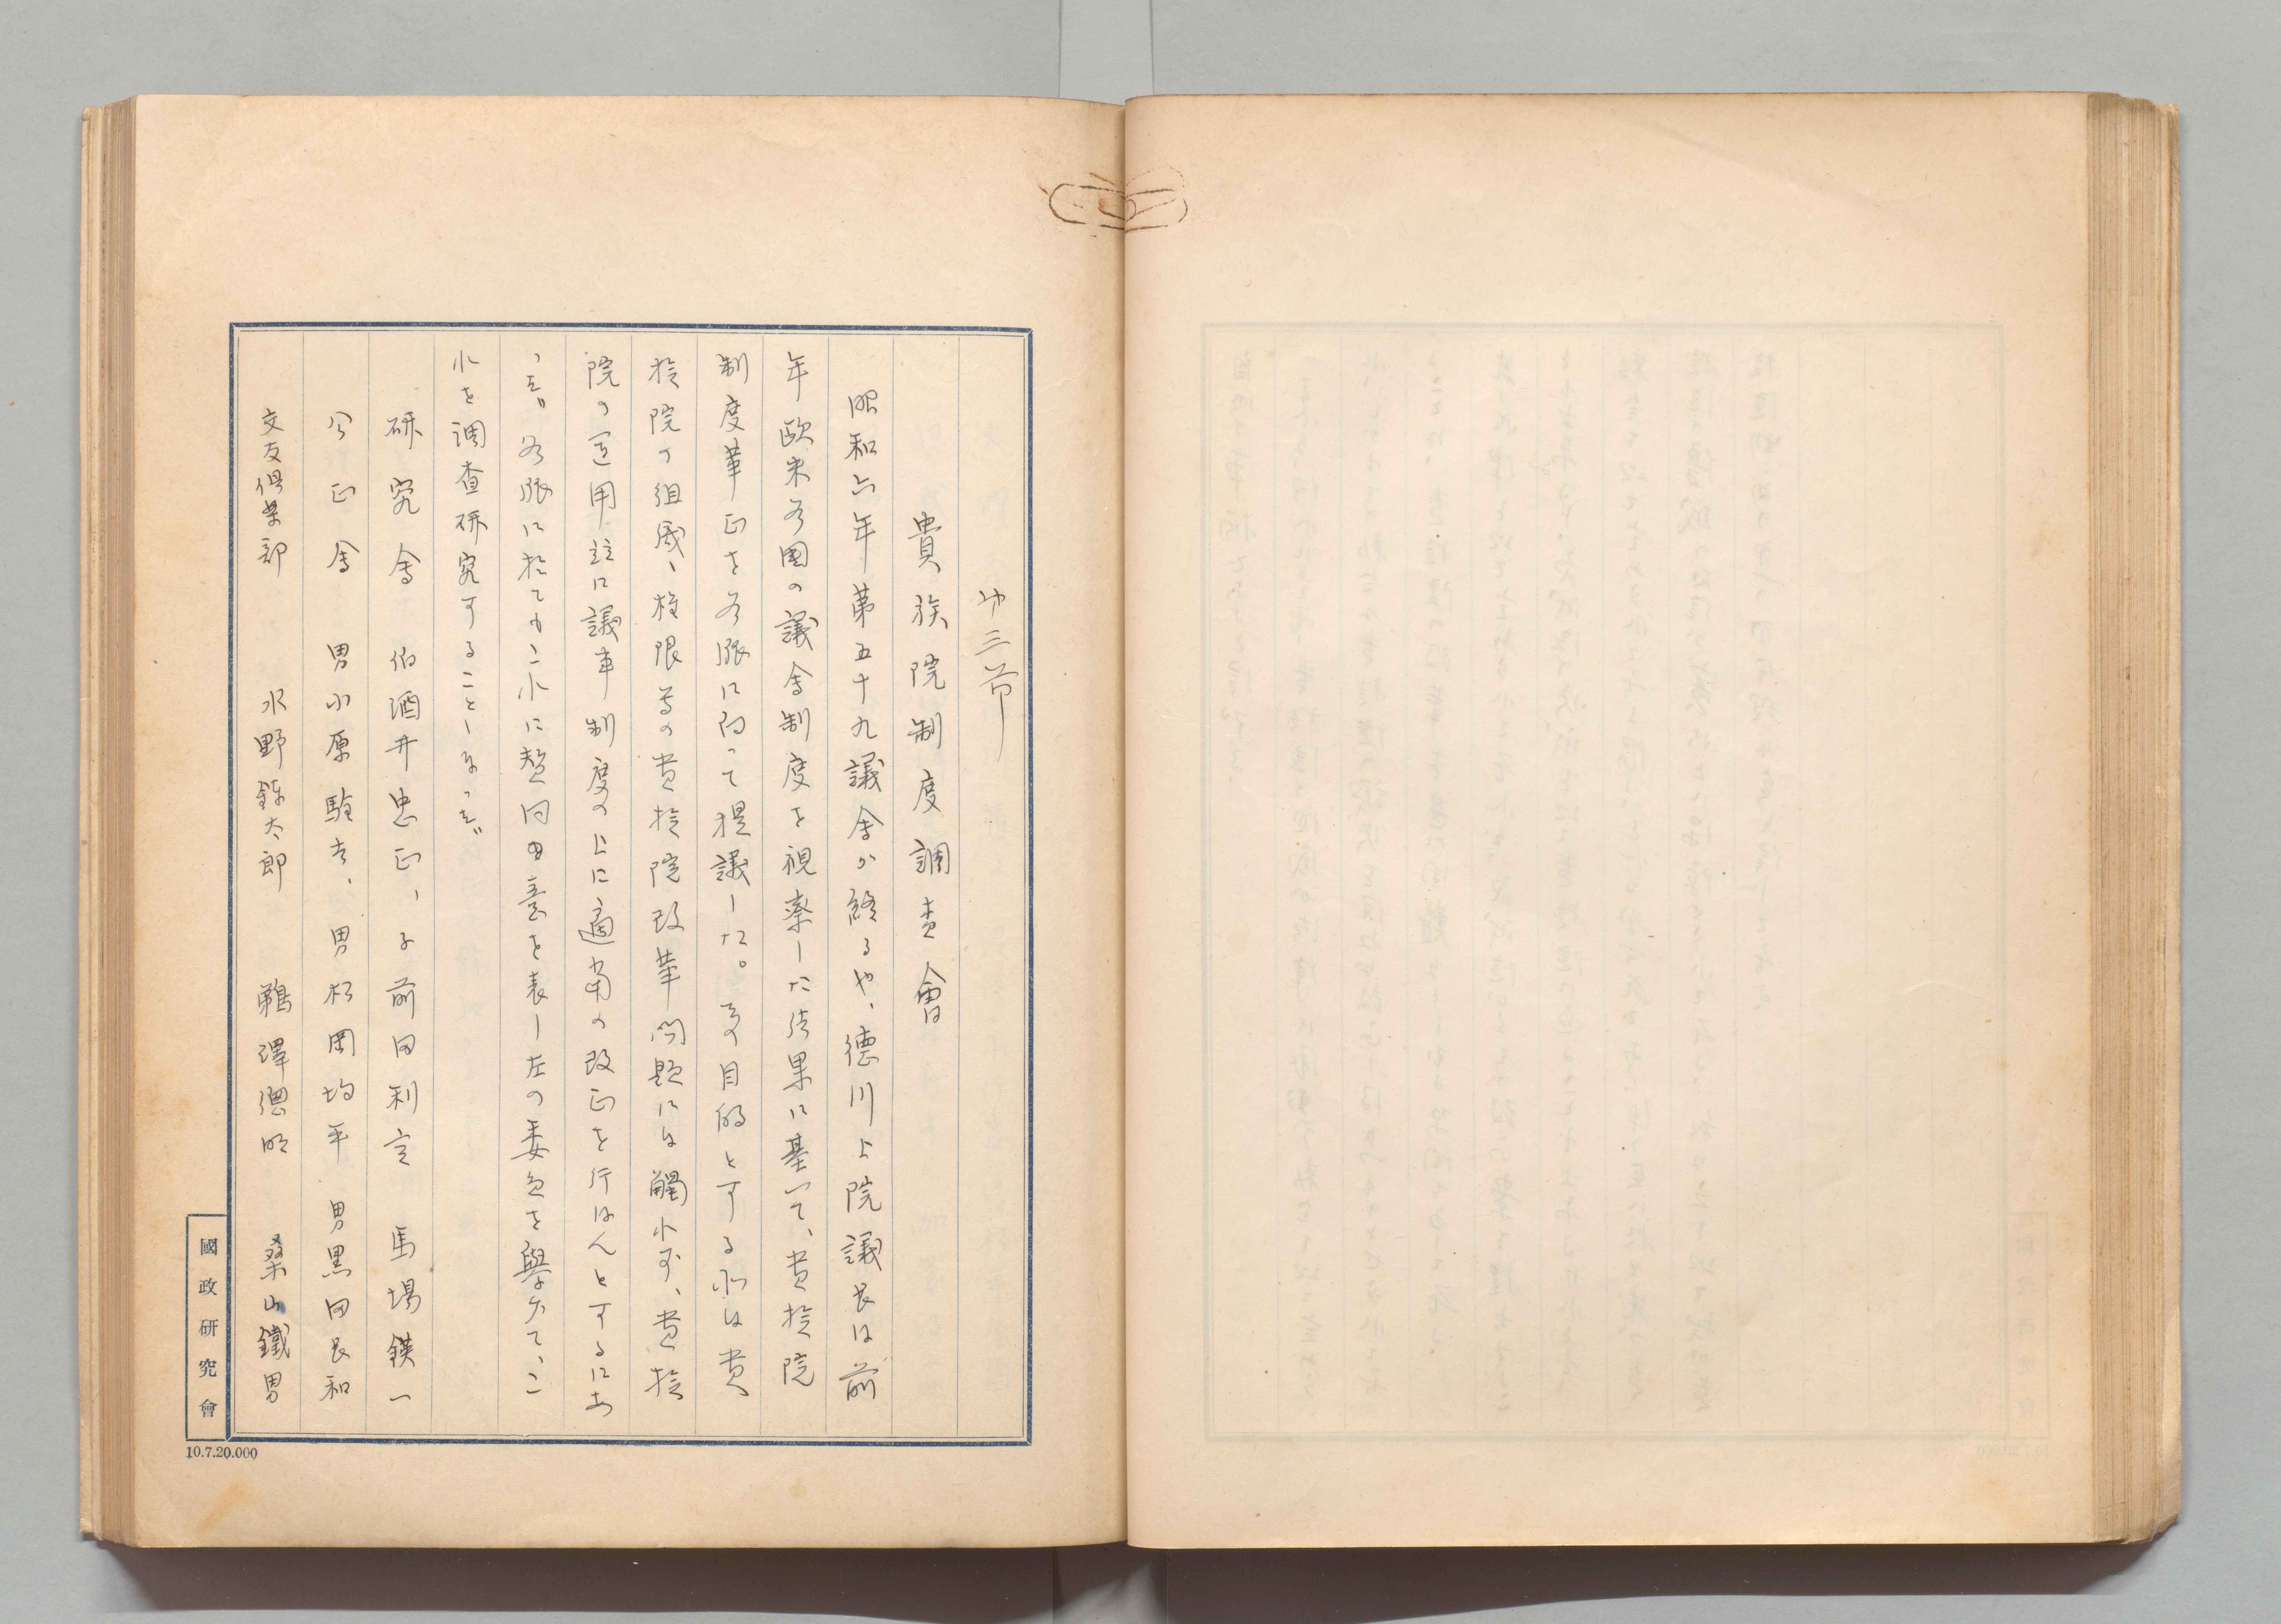 才三節
貴族院制度調査會
昭和六年第五十九議会が終るや、德川上院議長は前
年欧米各國の議会制度を視察した結果に基いて、貴族院
制度革正を各派に向って提議した。その目的とする所は貴
族院の組成、権限等の貴族院改革問題には觸れず、貴族
院の運用並に議事制度の上に適当の改正を行はんとするにあ
った。各派に於てもこれに賛同の意を表し左の委員を擧げて、こ
れを調査研究することゝなった。
研究会 伯酒井忠正、子前田利定 馬場鍈一
公正会 男小原駩吉、男松岡均平 男黒田長和
交友倶楽部 水野錬太郎 鵜澤總明 桑山鐵男
國政研究會
10.7.20.000